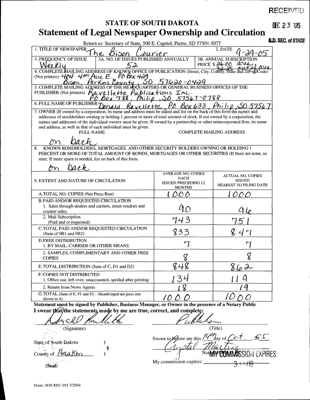 RECEIVED
DEC 23 '05
S.D. SEC. OF STATE
STATE OF SOUTH DAKOTA
Statement of Legal Newspaper Ownership and Circulation
Return to: Secretary of State, 500 E. Capitol, Pierre, SD 57501-5077
1. TITLE OF NEWSPAPER The Bison Courier 2. DATE 9-29-05
3. FREQUENCY OF ISSUE 3A. NO. OF ISSUES PUBLISHED ANNUALLY 3B. ANNUAL SUBSCRIPTION
Weekly 52 PRICE
4. COMPLETE MAILING ADDRESS OF KNOWN OFFICE OF PUBLICATION (Street, City, County, State and ZIP+4 Code)
(Not printers) Ave E. PO Box 429
Bison, Perkins County, SD 57620-0429
5. COMPLETE MAILING ADDRESS OF THE HEADQUARTERS OR GENERAL BUSINESS OFFICES OF THE
PUBLISHER (Not printers) Ravellette Publications Inc.
PO Box 788, Philip, SD 57567-0788
6. FULL NAME OF PUBLISHER Ravellette, PO Box 633 Philip, SD 57567
7. OWNER (If owned by a corporation, its name and address must be stated and also immediately
FULL NAME COMPLETE MAILING ADDRESS
on back
8. KNOWN BONDHOLDERS, MORTGAGEES, AND OTHER SECURITY HOLDERS OWNING OR HOLDING 1
PERCENT OR MORE TOTAL AMOUNT OF BONDS, MORTGAGES OR OTHER SECURITIES (If there are none, so
state. If more space is needed, list on back of this form.
on back
9. EXTENT AND NATURE OF CIRCULATION AVERAGE NO. COPIES EACH ISSUED PRECEDING 12 MONTHS ACTUAL NO. COPIES ISSUED NEAREST TO FILING DATE
A. TOTAL NO. COPIES (Net Press Run) 1000 1000
B. PAID AND/OR REQUESTED CIRCULATION
1. Sales through dealers and carriers, street vendors and
counter sales. 90 96
2. Mail Subscription
(Paid and or requested) 743 751
C. TOTAL PAID AND/OR REQUESTED CIRCULATION
(Sum of 9B1 and 9B2) 833 847
D. FREE DISTRIBUTION
1. BY MAIL, CARRIER OR OTHER MEANS 7 7
2. SAMPLES, COMPLIMENTARY AND OTHER FREE
COPIES 8 8
E. TOTAL DISTRIBUTION (Sum of C, D1 and D2) 848 862
F. COPIES NOT DISTRIBUTED
1. Office use, left over, unaccounted, spoiled after printing 134 119
2. Return from News Agents 18 19
G. TOTAL (Sum of E, F1 and F2 - Should equal net press run
shown in A) 1000 1000
Statement must be signed by Publisher, Business Manager, or Owner in the presence of a Notary Public
I swear that the statements made by me are true, correct, and complete:
Publisher
(Signature) (Title)
State of South Dakota ) Sworn to before me this 14th day of Oct. 05
County of Haakon ) Crystal
MY COMMISSION EXPIRES:
(Seal) My commission expires:
Form: SOS REC 051 7/2004